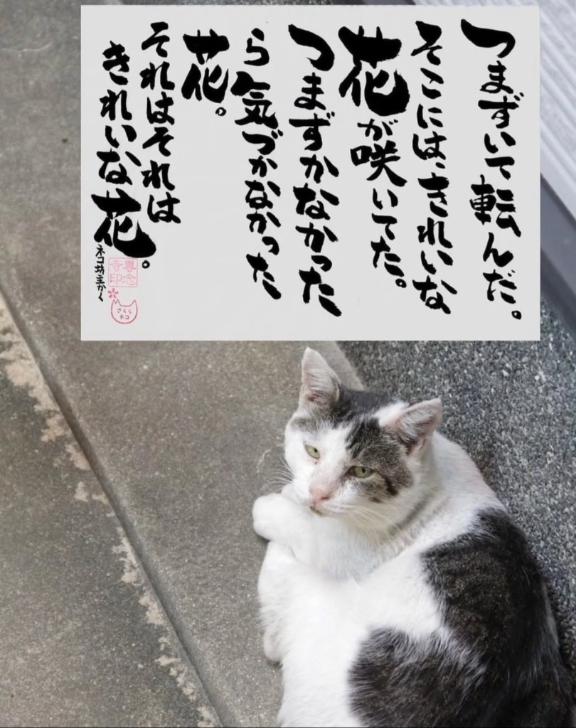 つまずいて転んだ。
そこにはきれいな
花が咲いてた。
つまずかなかった
ら気づかなかった
花。
それはそれは
きれいな花。
ネコ坊主かく